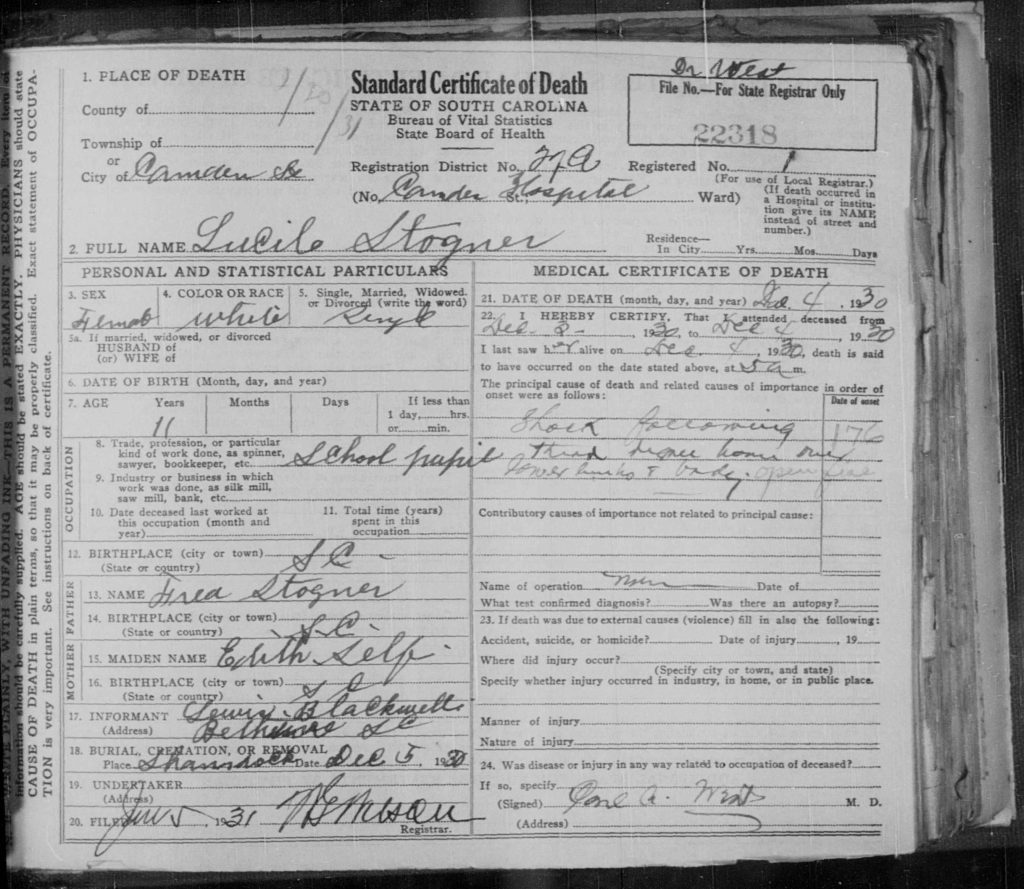 WRITE PLAINLY, WITH UNFADING INK—THIS IS A PERMANENT RECORD. Every item of
information should be carefully supplied. AGE should be stated EXACTLY. PHYSICIANS should state
CAUSE OF DEATH in plain terms, so that it may be properly classified. Exact statement of OCCUPA-
TION is very important. See instructions on back of certificate.
Dr West
1. PLACE OF DEATH
County of
Township of
or
City of Camden SC
1/20/31
Standard Certificate of Death
STATE OF SOUTH CAROLINA
Bureau of Vital Statistics
State Board of Health
File No.—For State Registrar Only
22318
Registration District No. 27A Registered No. 1
(For use of Local Registrar.)
(No. Camden Hospital St.; Ward)
(If death occurred in
a Hospital or institu-
tion give its NAME
instead of street and
number.)
2. FULL NAME Lucile Stogner
Residence—
In City Yrs. Mos. Days
PERSONAL AND STATISTICAL PARTICULARS
3. SEX
Female
4. COLOR OR RACE
White
5. Single, Married, Widowed.
or Divorced (write the word)
Single
5a. If married, widowed, or divorced
HUSBAND of
(or) WIFE of
6. DATE OF BIRTH (Month, day, and year)
7. AGE Years Months Days If less than
1 day, hrs.
or min.
11
OCCUPATION
8. Trade, profession, or particular
kind of work done, as spinner,
sawyer, bookkeeper, etc. School pupil
9. Industry or business in which
work was done, as silk mill,
saw mill, bank, etc.
10. Date deceased last worked at
this occupation (month and
year)
11. Total time (years)
spent in this
occupation
12. BIRTHPLACE (city or town) S C
(State or country)
FATHER
13. NAME Fred Stogner
14. BIRTHPLACE (city or town)
(State or country) S.C.
MOTHER
15. MAIDEN NAME Edith Self
16. BIRTHPLACE (city or town)
(State or country) S C
17. INFORMANT Lewis Blackwell
(Address) Bethune SC
18. BURIAL, CREMATION, OR REMOVAL
Place Shamrock Date Dec 5, 1930
19. UNDERTAKER
(Address)
20. FILED Jan 5 1931
Registrar.
MEDICAL CERTIFICATE OF DEATH
21. DATE OF DEATH (month, day, and year) Dec. 4, 1930
22. I HEREBY CERTIFY, That I attended deceased from
Dec. 3, 1930, to Dec 4, 1930
I last saw her alive on Dec. 4, 1930, death is said
to have occurred on the date stated above, at 5 a m.
The principal cause of death and related causes of importance in order of
onset were as follows:
Date of onset
Shock following
third degree burns over
lower limbs & body. open fire
176
Contributory causes of importance not related to principal cause:
Name of operation none Date of
What test confirmed diagnosis? Was there an autopsy?
23. If death was due to external causes (violence) fill in also the following:
Accident, suicide, or homicide? Date of injury , 19
Where did injury occur?
(Specify city or town, and state)
Specify whether injury occurred in industry, in home, or in public place.
Manner of injury
Nature of injury
24. Was disease or injury in any way related to occupation of deceased?
If so, specify
(Signed) Carl A. West M. D.
(Address)